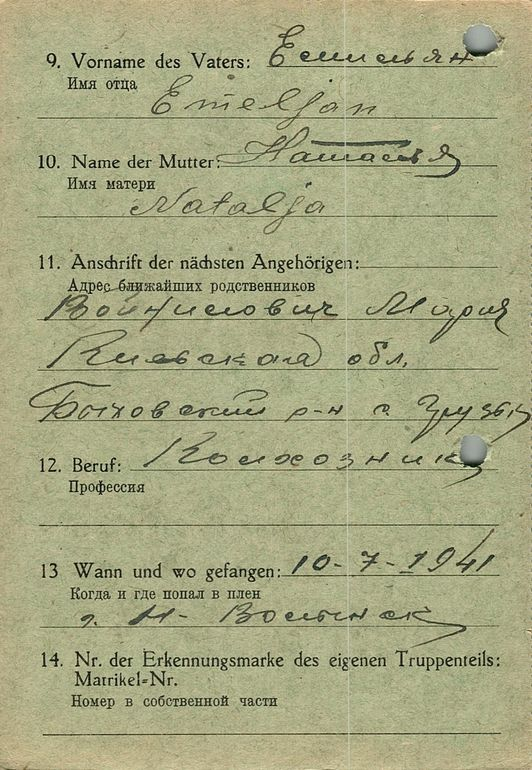 9. Vorname des Vaters: Емильян
Имя отца
Emeljan
10. Name der Mutter: Наталья
Имя матери
Natalja
11. Anschrift der nächsten Angehörigen:
Адрес ближайших родственников
Войнилович Мария
Киевская обл.
р-н с.
12. Beruf: Колхозник
Профессия
13 Wann und wo gefangen: 10-7-1941
Когда и где попал в плен
г. Н-Волынск
14. Nr. der Erkennungsmarke des eigenen Truppenteils:
Matrikel-Nr.
Номер в собственной части